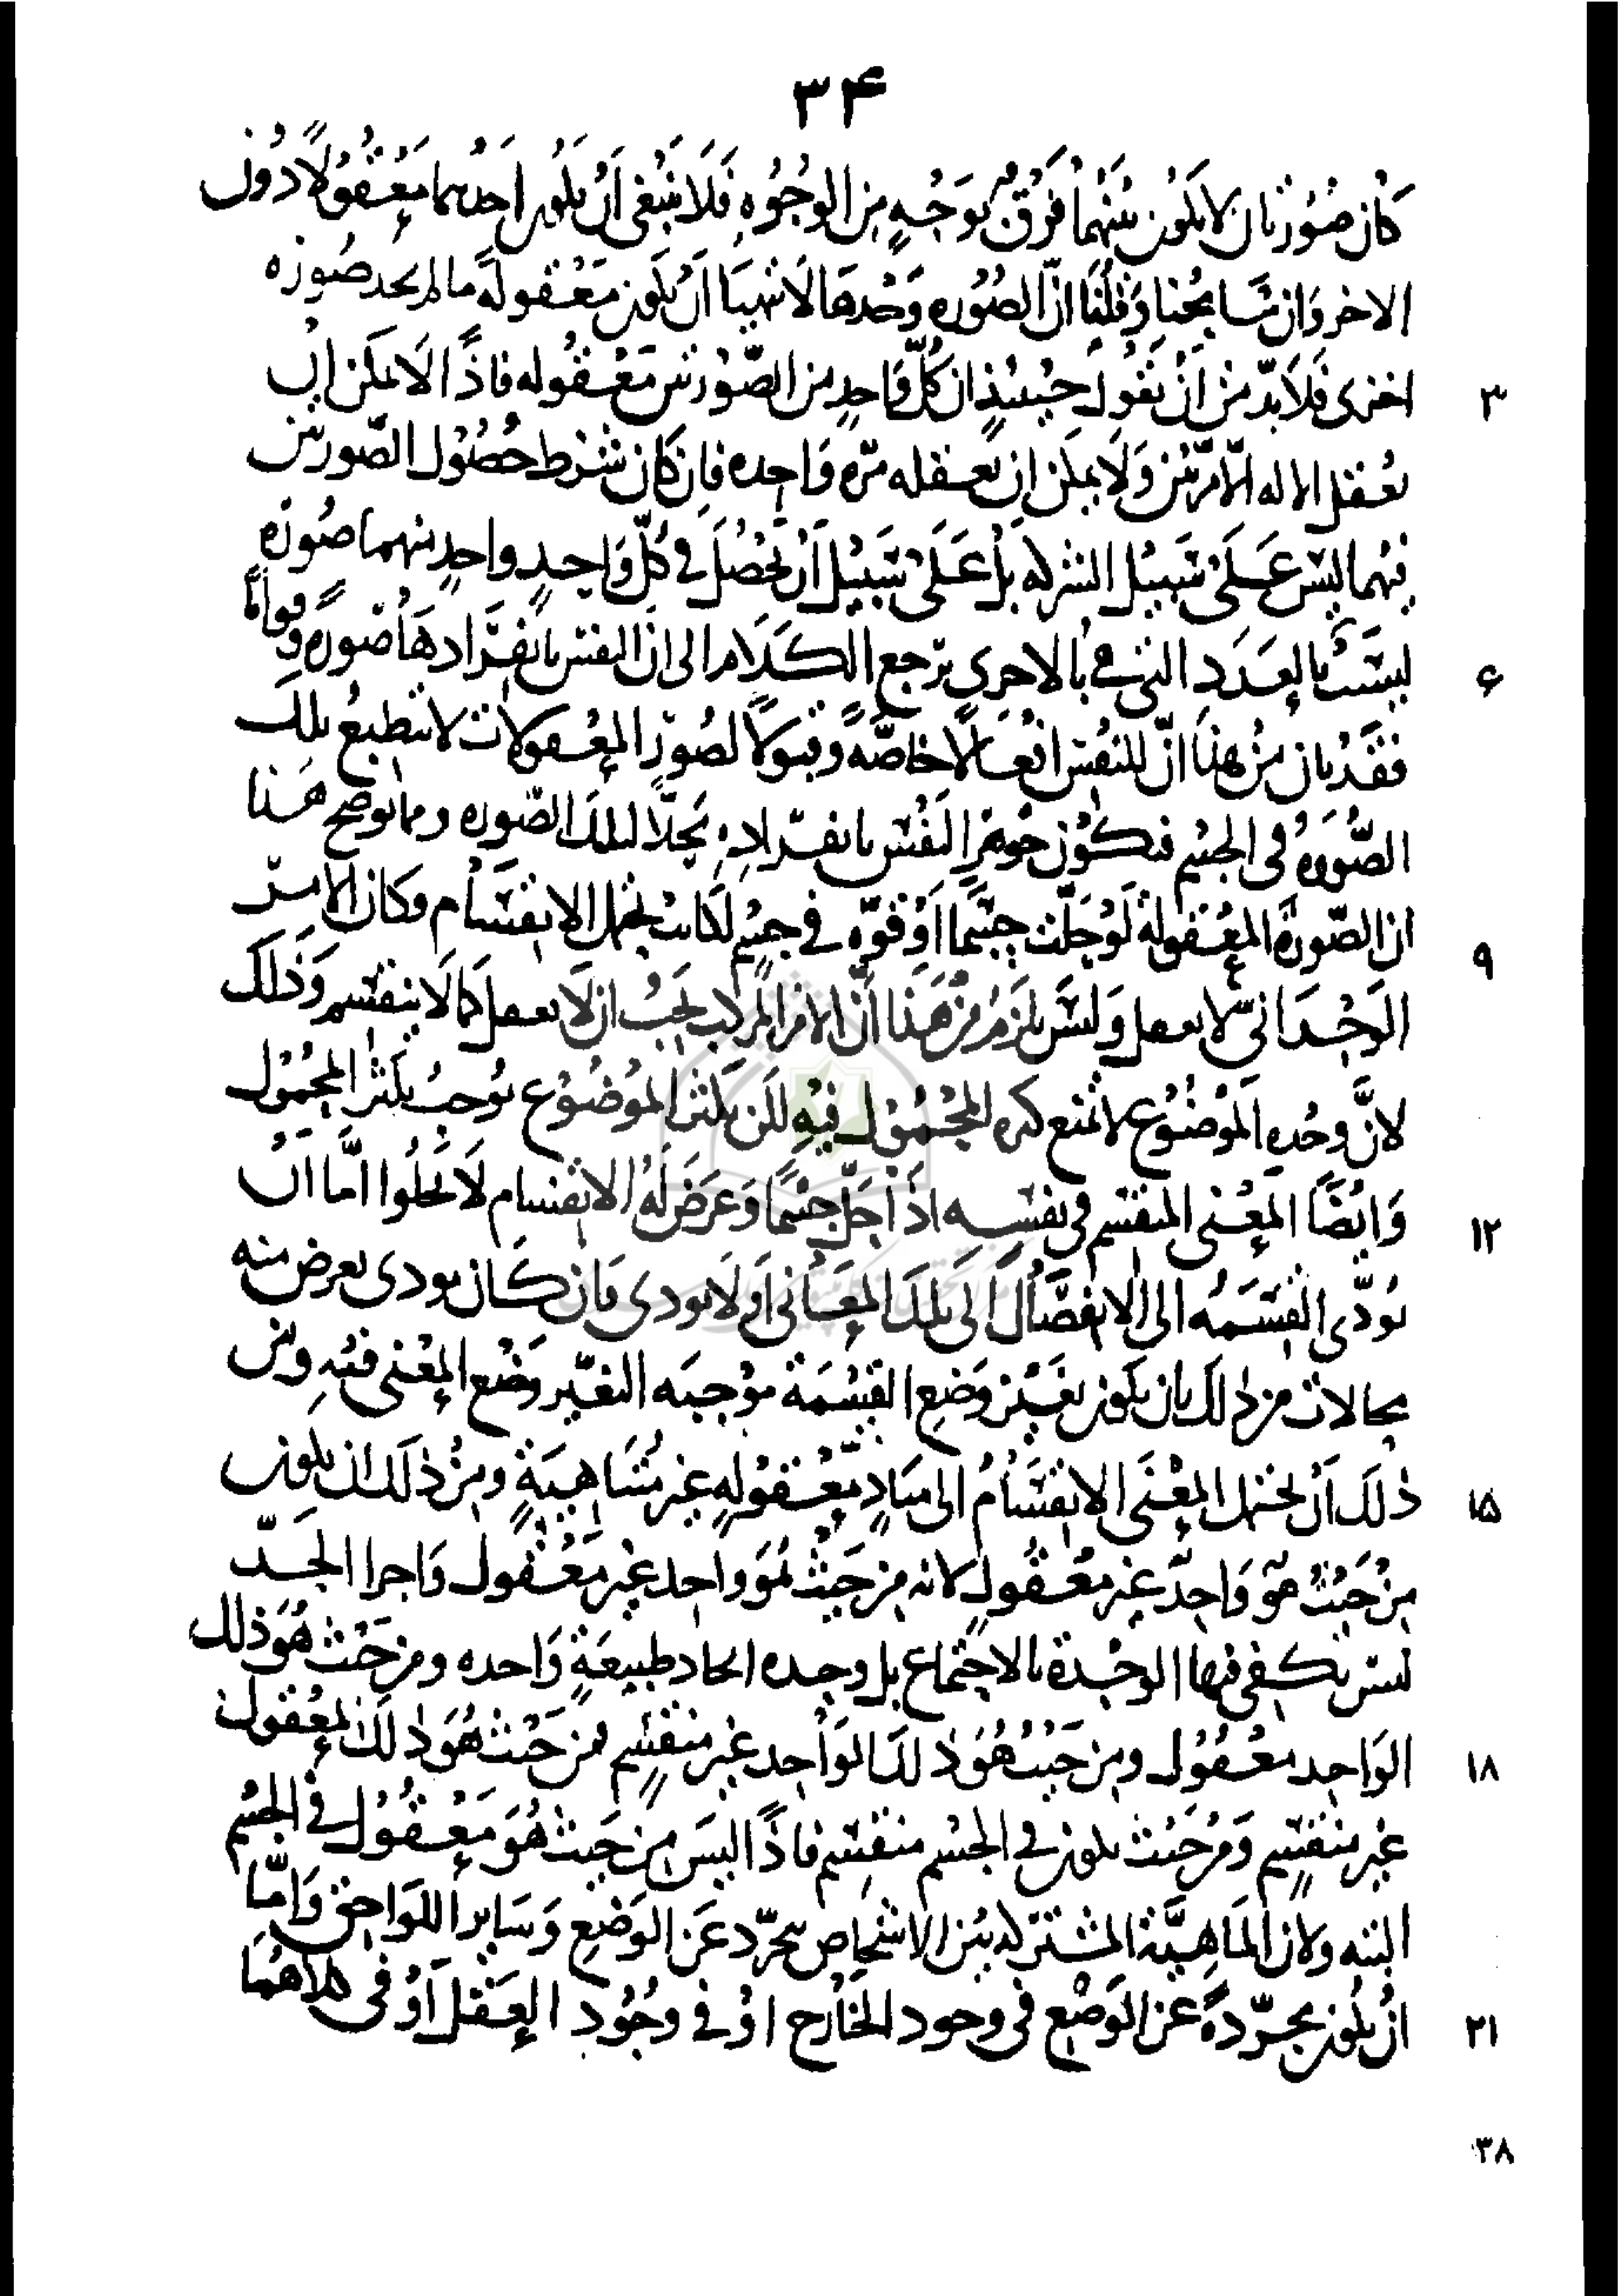 ٣٤
كان صورتان لا يكون بينهما فرق بوجه من الوجوه فلا ينبغي أن يكون احدهما معقولا دون
الاخر وان تسامحنا وقلنا انّ الصوره وحدها لا تتهيا أن يكون معقولة ما لم يحد صورة
اخرى فلا بدّ من أن نقول حينئذ ان كلّ واحد من الصورتين معقوله فاذًا لا يمكن ان
يعقل الاله الّا مرّتين ولا يمكن ان يعقله مرّه واحده فان كان شرط حصول الصورتين
فيهما ليس على سبيل الشركه بل على سبيل أن تحصل في كلّ واحد واحد منهما صورة
ليست بالعدد التي في الاخرى يرجع الكلام الى ان النفس بانفرادها صورة وقوامًا
فقد بان من هذا انّ للنفس افعالًا خاصّه وقبولًا لصور المعقولات لا تنطبع تلك
الصوره في الجسم فيكون جوهر النفس بانفراده محلّا لتلك الصوره ومما يوضح هذا
ان الصّورة المعقولة لو حلّت جسما أو قوّه في جسم لكانت تحتمل الانقسام وكان الامر
الوحداني لا يعقل وليس يلزم من هذا أنّ الامر المركب يجب ان لا يعقل بما لا ينقسم وذلك
لانّ وحده الموضوع لا تمنع كثره المحمول فيه لكن تكثر الموضوع يوجب تكثر المحمول
وايضًا المعنى المنقسم في نفسه اذا حلّ جسمًا وعرض له الانقسام لا يخلوا امّا ان
يؤدّى القسمه الى الانفصال الى تلك المعاني أو لا يودى فان كان يودى يعرض منه
محالات من ذلك بان يكون تغيّر وضع القسمة موجبه التغيّر وضع المعنى فيه ومن
ذلك أن يحتمل المعنى الانقسام الى مباد معقوله غير متناهية ومن ذلك ان يكون
من حيث هو واحد غير معقول لانه من حيث هو واحد غير معقول واجرا الحدّ
ليس يكفى فيها الوحدة بالاجتماع بل وحده اتحاد طبيعة واحده ومن حيث هو ذلك
الواحد معقول ومن حيث هو ذلك الواحد غير منقسم فمن حيث هو ذلك المعقول
غير منقسم ومن حيث يكون في الجسم منقسم فاذًا ليس من حيث هو معقول في الجسم
البته ولان الماهيّة المشتركه بين الاشخاص تتجرّد عن الوضع وساير اللواحق وامّا
ان يكون مجرّدة عن الوضع في وجود الخارج أو في وجود العقل أو في كلاهما
٣
۶
٩
١٢
١۵
١٨
٢١
٣٨